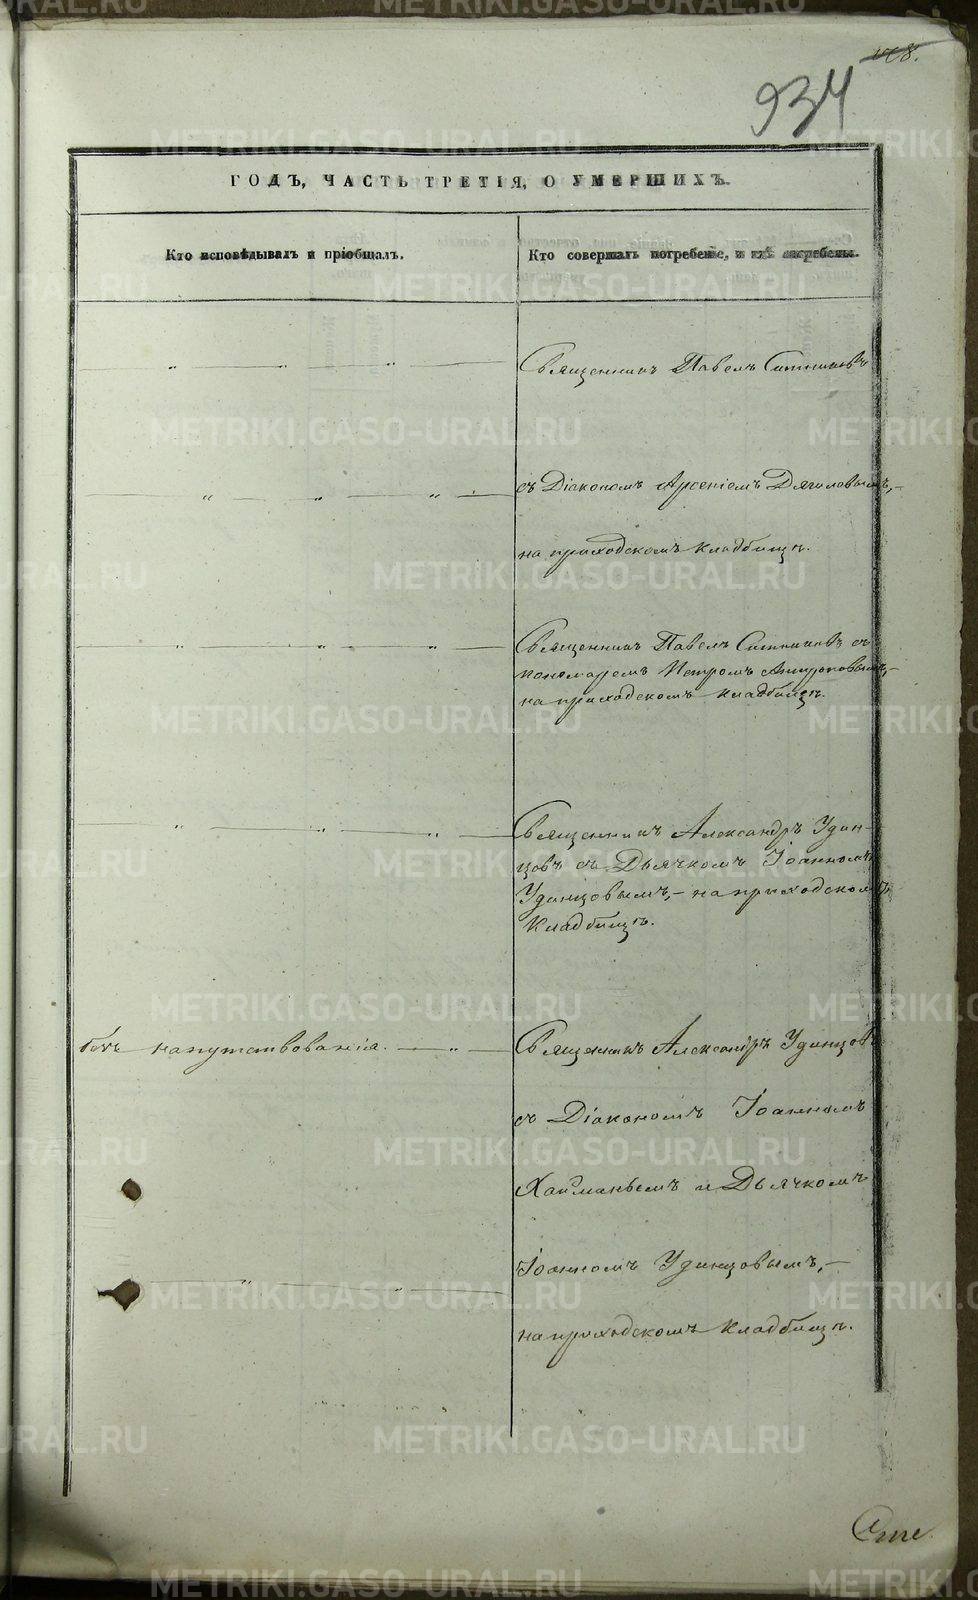 934
ГОДЪ, ЧАСТЬ ТРЕТІЯ, О УМЕРШИХЪ.
Кто исповѣдывалъ и пріобщалъ.
Кто совершалъ погребеніе, и гдѣ погребены.
Священникъ Павелъ Ситниковъ
съ Діакономъ Арсеніемъ Дягилевымъ,-
на приходскомъ кладбищѣ.
Священникъ Павелъ Ситниковъ съ
пономаремъ Петромъ
на приходскомъ кладбищѣ.
Священникъ Александръ Удин-
цовъ съ Дьячкомъ Іоанномъ
Удинцовымъ,- на приходскомъ
кладбищѣ.
безъ напутствованія.
Священникъ Александръ Удинцовъ
съ Діакономъ Іоанномъ
и Дьячкомъ
Іоанномъ Удинцовымъ,-
на приходскомъ кладбищѣ.
METRIKI.GASO-URAL.RU